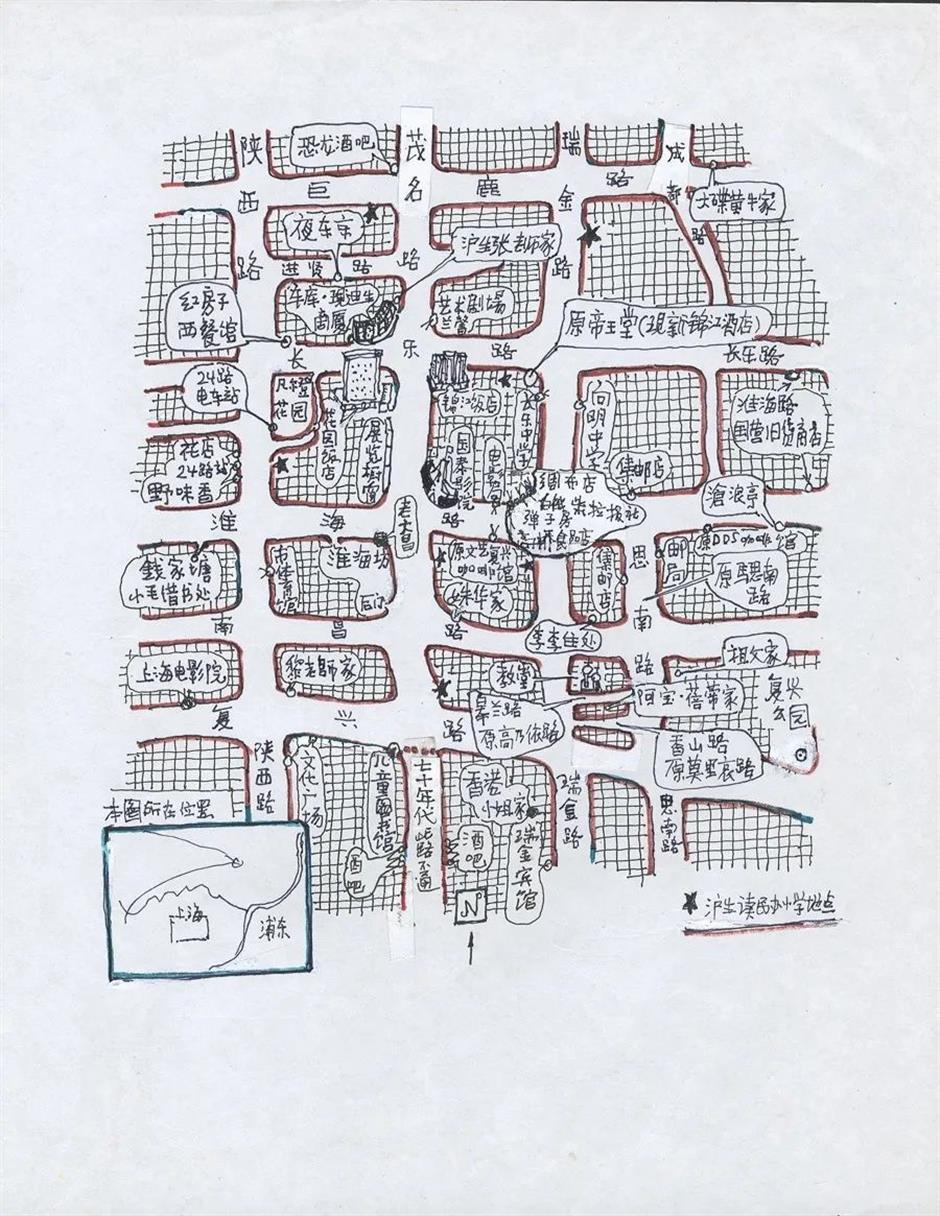 陕西路
恐龙酒吧
茂名路
瑞金路
成都路
巨鹿路
大碟黄牛家
夜东京
沪生张老师家
进贤路
红房子
西餐馆
艺术剧场
兰馨
原帝王堂(现新锦江酒店)
长乐路
长乐路
24路
电车站
凡登
花园
花园饭店
锦江饭店
长乐中学
向明中学
集邮店
淮海路
国营旧货商店
花店
24路站
野味香
国泰影院
电影
绸布店
弹子房
沧浪亭
淮海路
老大昌
钱家塘
小毛借书处
淮海坊
后门
原文艺复兴
咖啡馆
姝华家
集邮店
思南路
邮局
原DDS咖啡馆
原马思南
路
南昌路
李李住处
上海电影院
黎老师家
教堂
祖父家
阿宝·蓓蒂家
皋兰路
原高乃依路
香山路
原莫里哀路
复兴
公园
复兴路
陕西路
文化广场
儿童图书馆
酒吧
七十年代此路不通
香港
小姐家
酒吧
瑞金宾馆
瑞金路
思南路
本图所在位置
上海
浦东
N
★沪生读民办小学地点